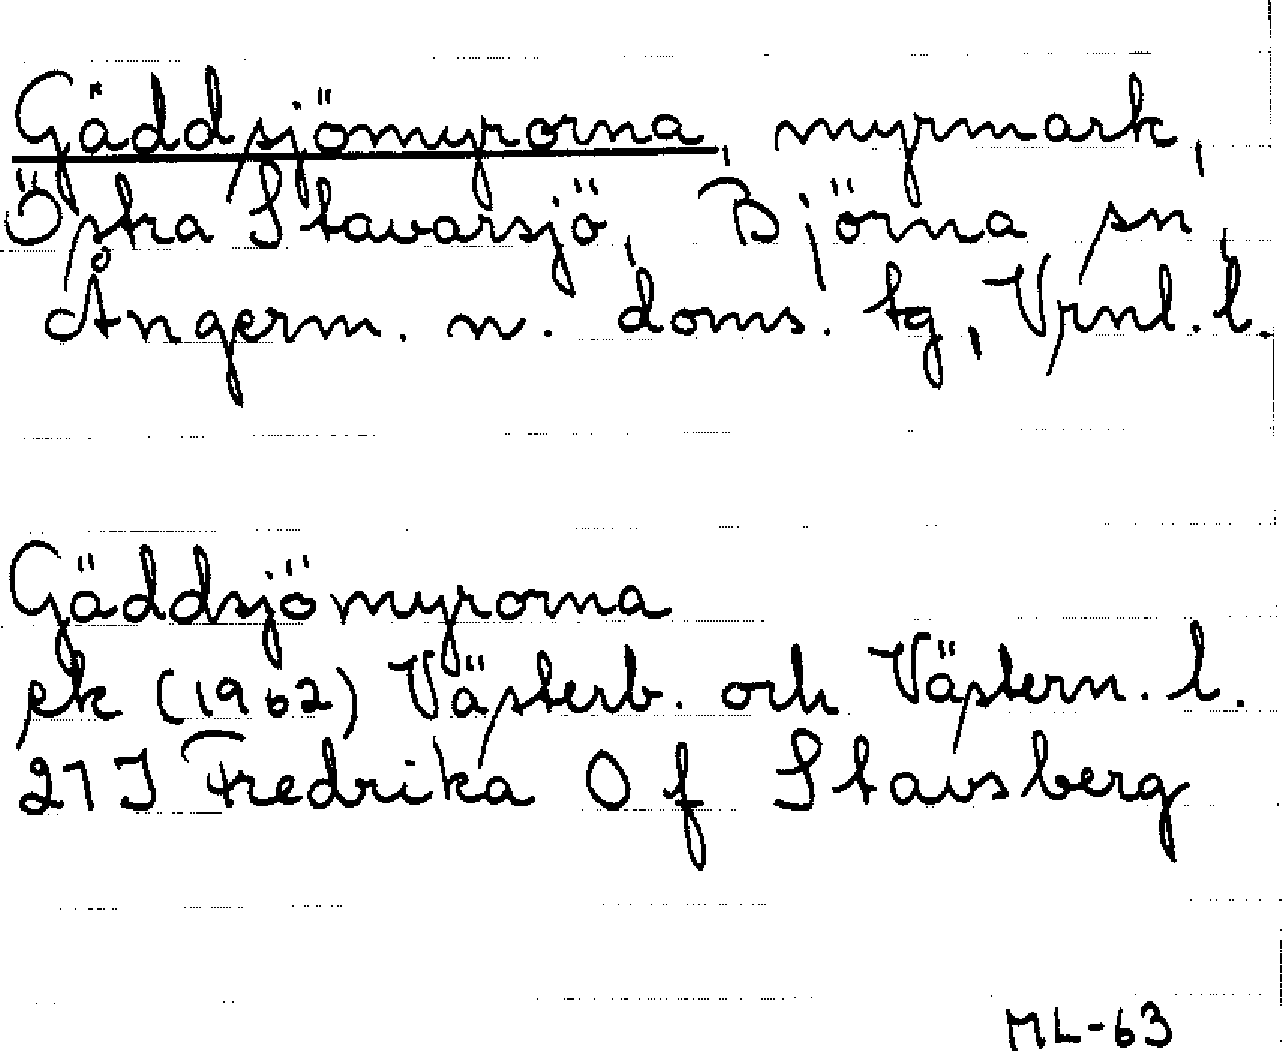 Gäddsjömyrorna, myrmark,
Östra Stavarsjö, Björna sn,
Ångerm. n. doms. tg, Vrnl. l.
Gäddsjömyrorna
ek (1962) Västerb. och Västern. l.
21 J Fredrika 0 f Stavsberg
ML-63